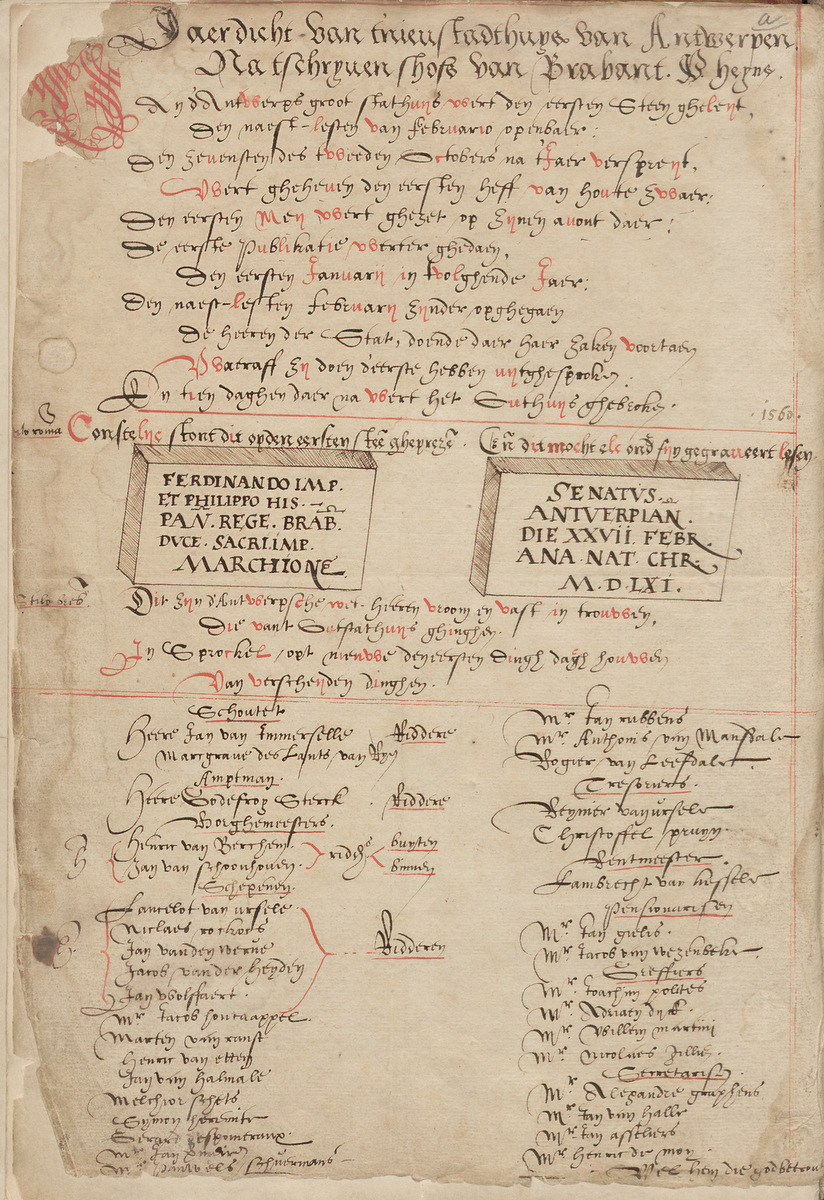 a
Jaerdicht van tnieu stadthuys van Antwerpen.
Na tschryven shofs van Brabant. P heyns.
And Antwerps groot stathuijs wert den eersten Steen gheleijt,
Den naest-lesten van februario openbaer:
Den zevensten des tweeden Octobers na t'Jaer verspreijt,
Wert gheheven den eersten heff van houte zwaer:
Den eersten Meij wert ghezet op zijnen avont daer:
De eerste publikatie werter ghedaen,
Den eersten Januarij in tvolghende Jaer:
Den naest-lesten februarij zijnder opghegaen
De heeren der Stat, doende daer haer zaken voortaen
Waeraff zij doen d'eerste hebben uijtghesproken.
En tien daghen daer na wert het Outhuijs ghebroken.
1560.
stilo roma
Constelijc stont dit op den eersten steē gheprezē. En dit mocht elc ond sijn gegraveert lesen
FERDINANDO IMP.
ET PHILIPPO HIS-
PAN̄. REGE. BRAB.
DVCE. SACRI. IMP.
MARCHIONE.
SENATVS.
ANTVERPIAN.
DIE XXVII FEBR.
ANA. NAT. CHR.
M.D.LXI.
Dit zijn d'Antwerpsche wet-heeren vroom en vast in trouwen,
Die vant Outstathuijs ghinghen.
In Sprockel, opt nieuwe den eersten dingh dagh houwen
Van verscheijden dinghen.
Schoutet
Heere Jan van Immerselle Riddere
Marcgrave des Lants van Ryn
Amptman.
Heere Godefroy Sterck . Riddere
Borghemeesters.
Henric van Berchem. buyten
Jan van schoonhoven. ridd^s binnen
Schepenen.
Lancelot van ursele.
Niclaes rockocs
Jan vanden werve
Jacob vander heyden Ridderen
Jan wolffaert.
M^r. Jacob hontaappel.
Marten van ranst
Henric van etten
Jan van halmale
Melchior schets
Symon heremite
Gerard despomeraux.
M^r Jan
M^r pauwels schuermans
M^r. Jan rubbens
M^r. Anthonis van Mansdale
Rogier van Leefdale
Tresoriers.
Reynier van ursele
Christoffel pruyn.
Rentmeester.
Lambrecht van kessele
Pensionarisen
M^r. Jan gielis.
M^r. Jacob van Wezenbeke.
Greffiers
M^r. Joachim polites
M^r. Adriaen dyck.
M^r. Willem martini
M^r. Nicolaes zillis.
Secretarisen
M^r. Alexandre grapheus
M^r. Jan van halle
M^r. Jan asseliers
M^r. henric de moy.
Wel hem die godbetrout